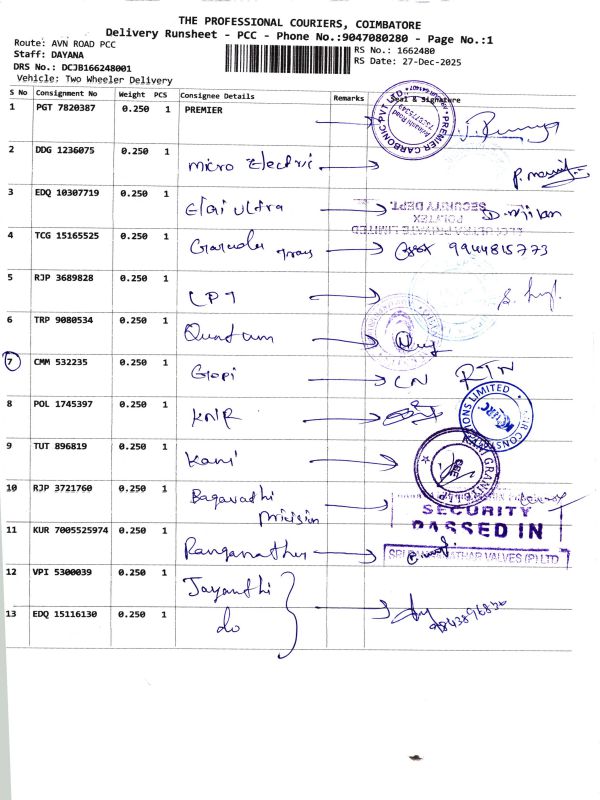 THE PROFESSIONAL COURIERS, COIMBATORE
Delivery Runsheet - PCC - Phone No.:9047080280 - Page No.:1
Route: AVN ROAD PCC
Staff: DAYANA
DRS No.: DCJB166248001
Vehicle: Two Wheeler Delivery
RS No.: 1662480
RS Date: 27-Dec-2025
S No Consignment No Weight PCS Consignee Details Remarks Seal & Signature
1 PGT 7820387 0.250 1 PREMIER
PREMIER CARBONIC PVT LTD
2 DDG 1236075 0.250 1 Micro Electric
3 EDQ 10307719 0.250 1 Elgi Ultra
SECURITY DEPT.
POLYTEX
4 TCG 15165525 0.250 1 9944815773
5 RJP 3689828 0.250 1 LPT
6 TRP 9080534 0.250 1 Quantum
7 CMM 532235 0.250 1 Gopi CN RTN
8 POL 1745397 0.250 1 KNR
9 TUT 896819 0.250 1 Kani
10 RJP 3721760 0.250 1 Bagavathi
SECURITY
PASSED IN
11 KUR 7005525974 0.250 1 Ranganathar
VALVES (P) LTD
12 VPI 5300039 0.250 1 Jayanthi
13 EDQ 15116130 0.250 1 do